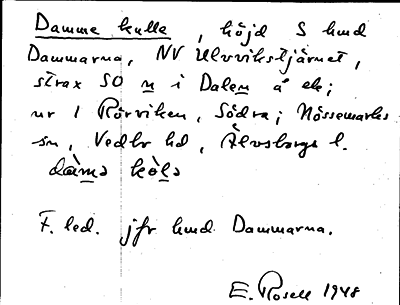 Damme kulle, höjd S hmd
Dammarna, NV Ulvvikstjärnet,
strax SO n i Dalen å ek;
nr 1 Rörviken, Södra; Nössemarks
sn, Vedbo hd, Älvsborgs l.
dàmə kòlə
F. led. jfr hmd Dammarna.
E. Rosell 1948